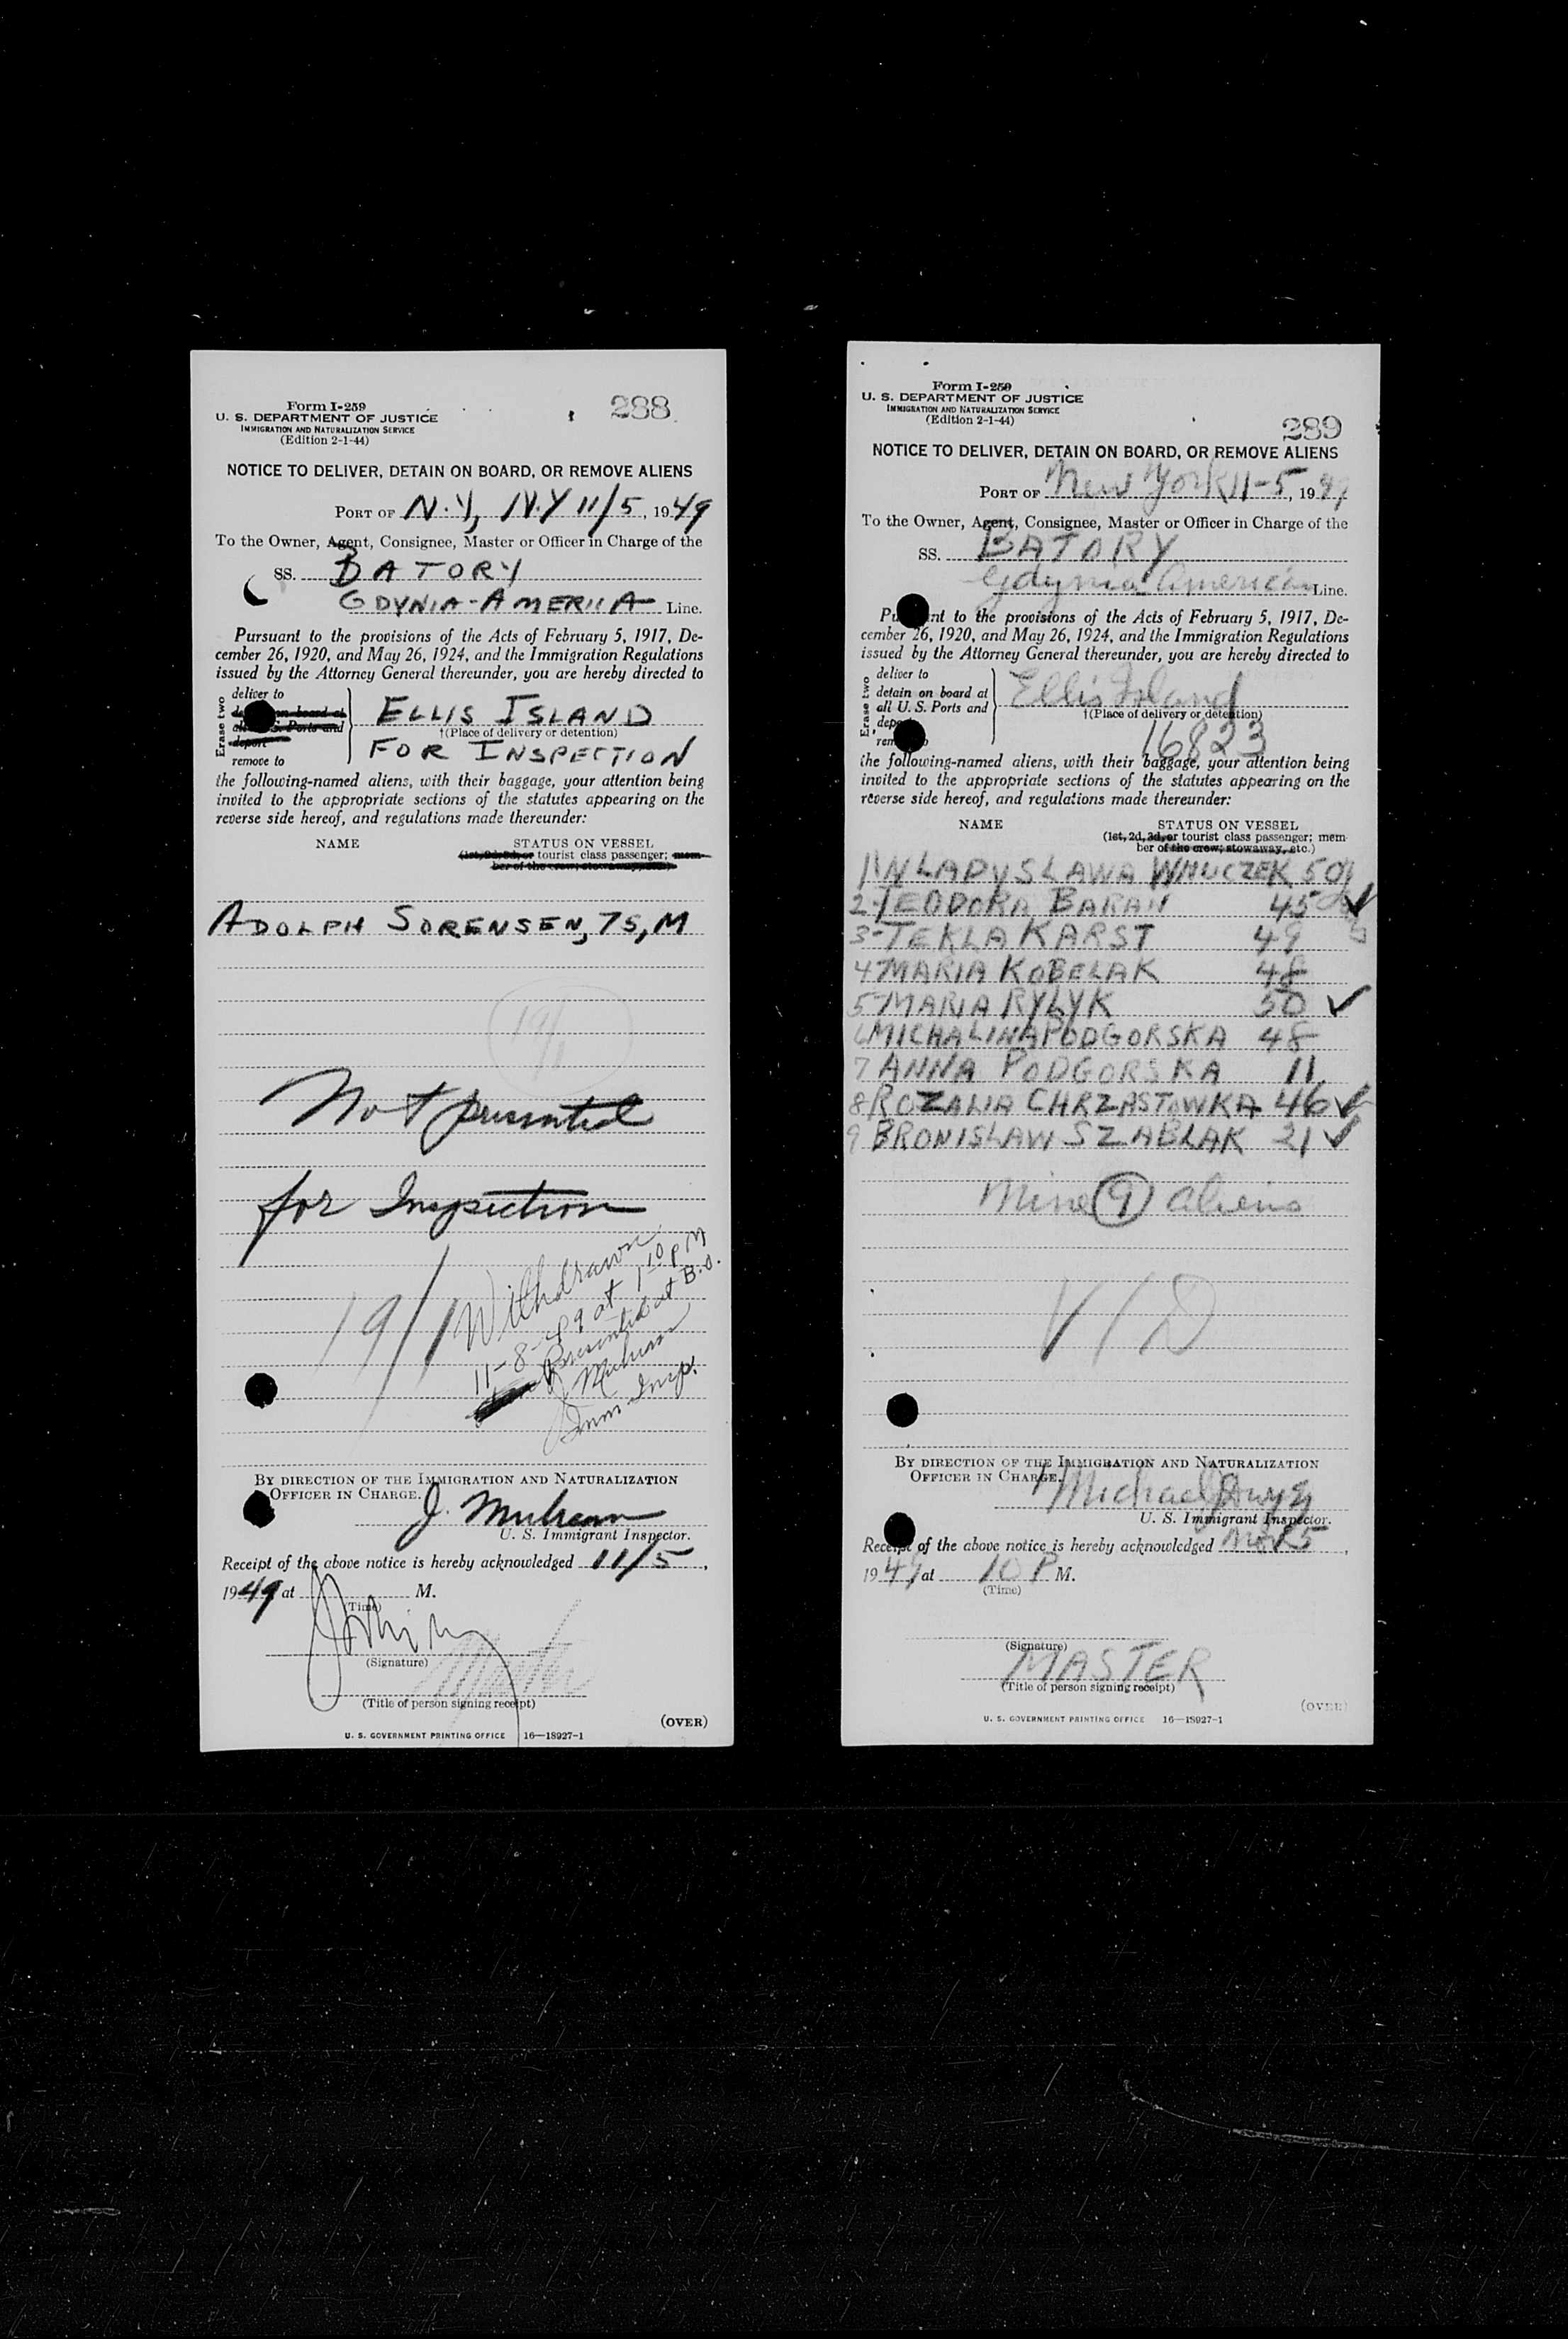 Form I-259
U. S. DEPARTMENT OF JUSTICE
IMMIGRATION AND NATURALIZATION SERVICE
(Edition 2-1-44)
288
NOTICE TO DELIVER, DETAIN ON BOARD, OR REMOVE ALIENS
PORT OF N.Y, N.Y 11/5, 1949
To the Owner, Agent, Consignee, Master or Officer in Charge of the
SS. BATORY
GDYNIA-AMERICA Line.
Pursuant to the provisions of the Acts of February 5, 1917, De-
cember 26, 1920, and May 26, 1924, and the Immigration Regulations
issued by the Attorney General thereunder, you are hereby directed to
Erase two
deliver to
on board at
U. S. Ports and
deport
remove to
ELLIS ISLAND
†(Place of delivery or detention)
FOR INSPECTION
the following-named aliens, with their baggage, your attention being
invited to the appropriate sections of the statutes appearing on the
reverse side hereof, and regulations made thereunder:
NAME STATUS ON VESSEL
(1st, 2d, 3d, or tourist class passenger; mem-
ber of the crew; stowaway, etc.)
ADOLPH SORENSEN, 75, M
19/1
Not presented
for Inspection
19/1
Withdrawn
11-8-49 at 1 10 PM
Presented at B.O.
J Mulream
Imm. Insp.
BY DIRECTION OF THE IMMIGRATION AND NATURALIZATION
OFFICER IN CHARGE.
J.
U. S. Immigrant Inspector.
Receipt of the above notice is hereby acknowledged 11/5,
1949 at M.
(Time)
(Signature)
Master
(Title of person signing receipt)
(OVER)
U. S. GOVERNMENT PRINTING OFFICE 16—18927-1
Form I-259
U. S. DEPARTMENT OF JUSTICE
IMMIGRATION AND NATURALIZATION SERVICE
(Edition 2-1-44)
289
NOTICE TO DELIVER, DETAIN ON BOARD, OR REMOVE ALIENS
PORT OF New York 11-5, 1949
To the Owner, Agent, Consignee, Master or Officer in Charge of the
SS. BATORY
Gdynia American Line.
Pursuant to the provisions of the Acts of February 5, 1917, De-
cember 26, 1920, and May 26, 1924, and the Immigration Regulations
issued by the Attorney General thereunder, you are hereby directed to
Erase two
deliver to
detain on board at
all U. S. Ports and
deport
remove to
Ellis Island
†(Place of delivery or detention)
16823
the following-named aliens, with their baggage, your attention being
invited to the appropriate sections of the statutes appearing on the
reverse side hereof, and regulations made thereunder:
NAME STATUS ON VESSEL
(1st, 2d, 3d, or tourist class passenger; mem-
ber of the crew; stowaway, etc.)
1 WLADYSLAWA WNUCZEK 50
2-TEODORA BARAN 45 ✓
3-TEKLA KARST 49
4 MARIA KOBELAK 48
5-MARIA RYLYK 50 ✓
6 MICHALINA PODGORSKA 48
7 ANNA PODGORSKA 11
8 ROZALIA CHRZASTOWKA 46 ✓
9 BRONISLAW SZABLAK 21 ✓
Nine (9) aliens
V/D
BY DIRECTION OF THE IMMIGRATION AND NATURALIZATION
OFFICER IN CHARGE.
Michael
U. S. Immigrant Inspector.
Receipt of the above notice is hereby acknowledged Nov 5,
1949, at 10 P M.
(Time)
(Signature)
MASTER
(Title of person signing receipt)
(OVER)
U. S. GOVERNMENT PRINTING OFFICE 16—18927-1